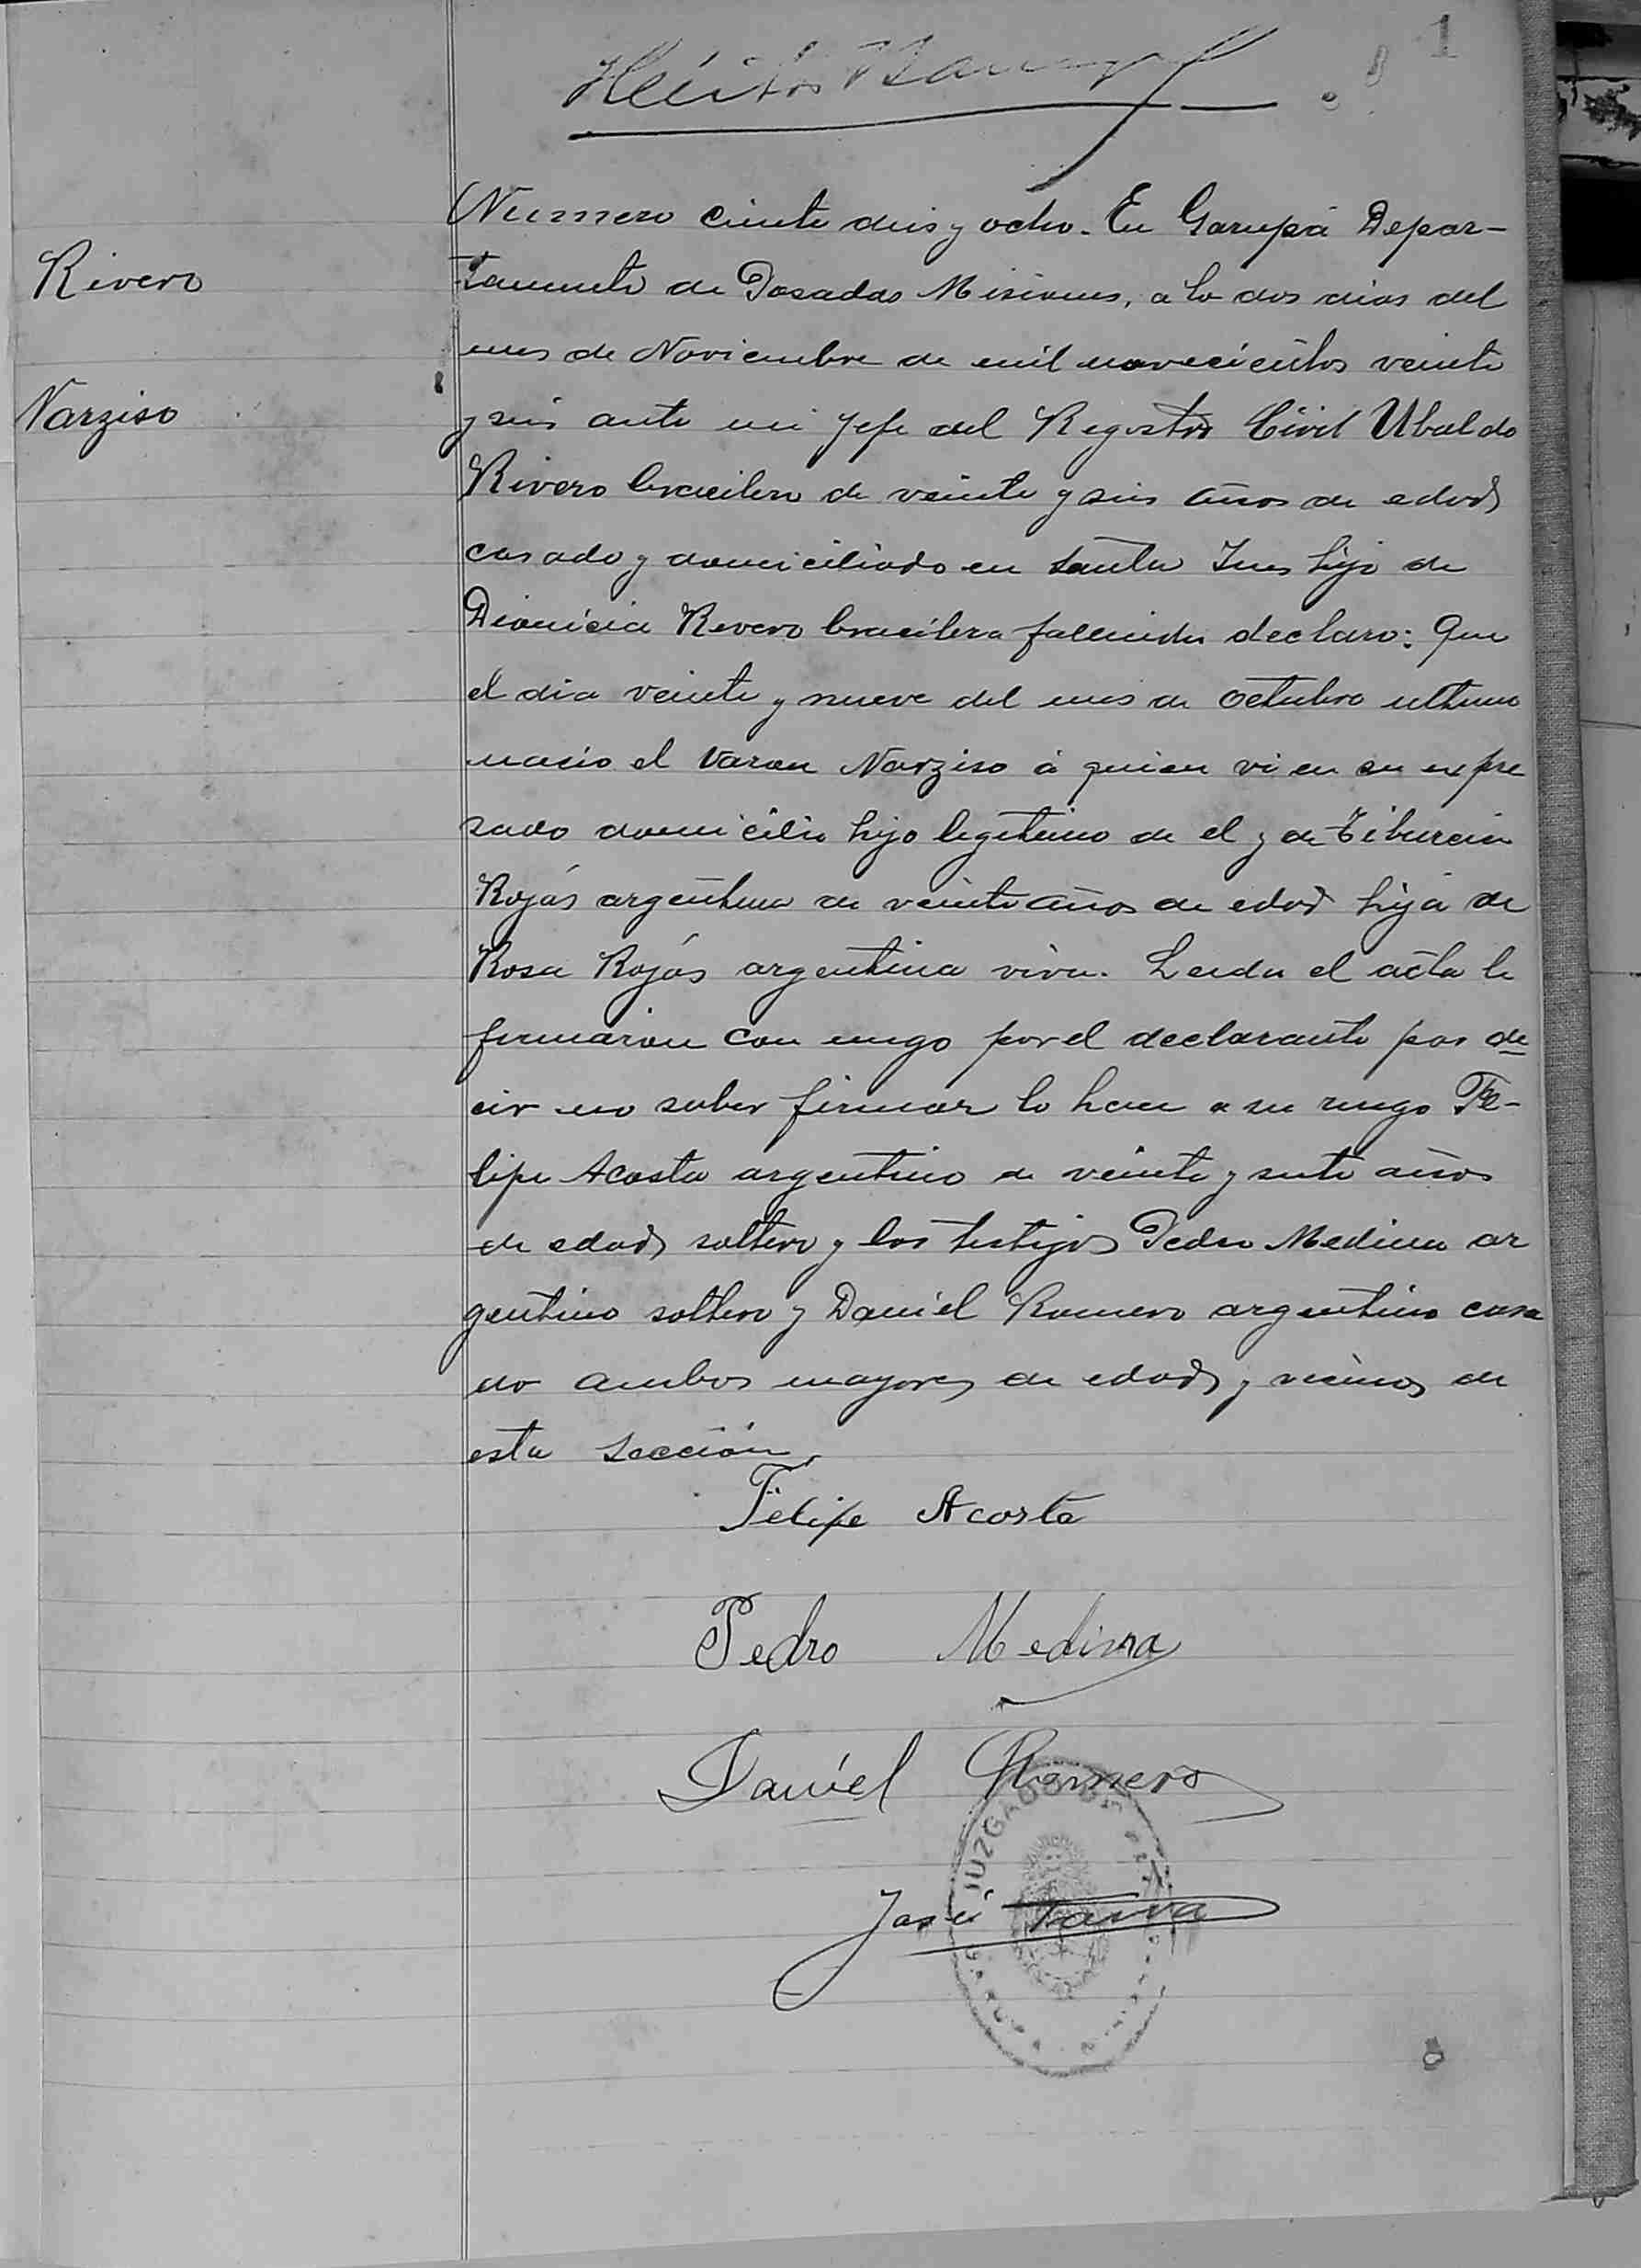 1
Numero ciento dies y ocho. En Garupá Depar-
Rivero
tamento de Posadas Misiones, a lo dos dias del
mes de Noviembre de mil novecientos veinte
Narziso
y seis ante mi Jefe del Registro Civil Ubaldo
Rivero bracilero de veinte y seis años de edad
casado y domiciliado en Santa Ines hijo de
Dionicia Rivero bracilera fallecida declaro: Que
el dia veinte y nueve del mes de Octubre ultimo
nacio el varon Narziso á quien vi en su expre
sado domicilio hijo legitimo de el y de Tiburcia
Rojás argentina de veinte años de edad hija de
Rosa Rojás argentina viva. Leida el acta la
firmaron con migo por el declarante por de
cir no saber firmar lo hace a su ruego Fe-
lipe Acosta argentino de veinte y siete años
de edad soltero y los testigos Pedro Medina ar
gentino soltero y Daniel Romero argentino casa
do ambos mayores de edad y vecinos de
esta sección
Felipe Acosta
Pedro Medina
Daniel Romero
JUZGADO DE PAZ
José
GARUPA